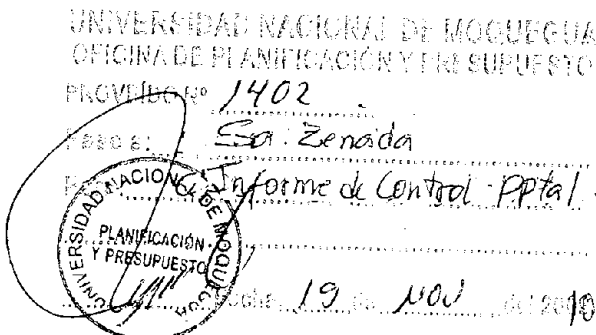 UNIVERSIDAD NACIONAL DE MOQUEGUA
OFICINA DE PLANIFICACIÓN Y PRESUPUESTO
PROVEÍDO Nº 1402
PASE A: Sra. Zenaida
Informe de Control Pptal.
UNIVERSIDAD NACIONAL DE MOQUEGUA
PLANIFICACIÓN
Y PRESUPUESTO
19 de NOV del 2010